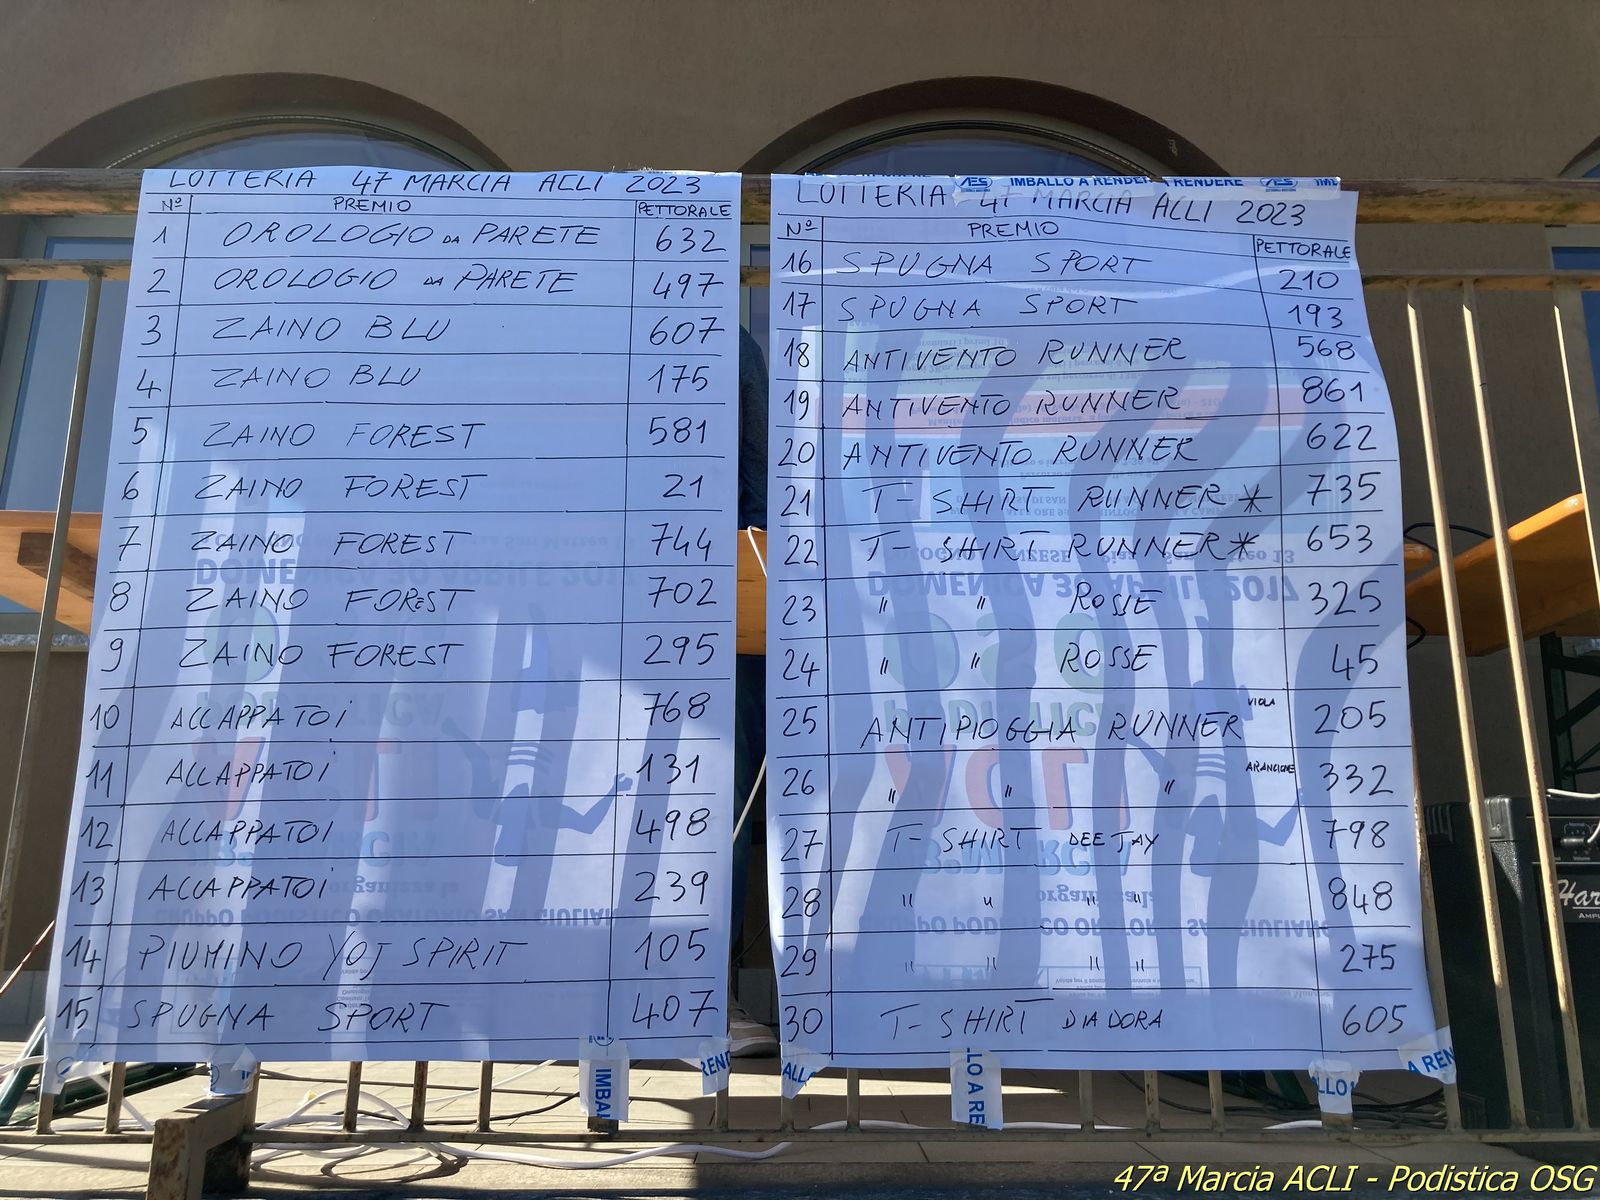 LOTTERIA 47 MARCIA ACLI 2023
Nº PREMIO PETTORALE
1 OROLOGIO DA PARETE 632
2 OROLOGIO DA PARETE 497
3 ZAINO BLU 607
4 ZAINO BLU 175
5 ZAINO FOREST 581
6 ZAINO FOREST 21
7 ZAINO FOREST 744
8 ZAINO FOREST 702
9 ZAINO FOREST 295
10 ACCAPPATOi 768
11 ACCAPPATOi 131
12 ACCAPPATOi 498
13 ACCAPPATOi 239
14 PIUMINO YOJ SPIRIT 105
15 SPUGNA SPORT 407
IMBALLO A RENDERE
LOTTERIA 47 MARCIA ACLI 2023
Nº PREMIO PETTORALE
16 SPUGNA SPORT 210
17 SPUGNA SPORT 193
18 ANTIVENTO RUNNER 568
19 ANTIVENTO RUNNER 861
20 ANTIVENTO RUNNER 622
21 T-SHIRT RUNNER * 735
22 T-SHIRT RUNNER * 653
23 " " ROSSE 325
24 " " ROSSE 45
25 ANTIPIOGGIA RUNNER VIOLA 205
26 " " " ARANCIONE 332
27 T-SHIRT DEEJAY 798
28 " " " " 848
29 " " " " 275
30 T-SHIRT DIADORA 605
47ª Marcia ACLI - Podistica OSG